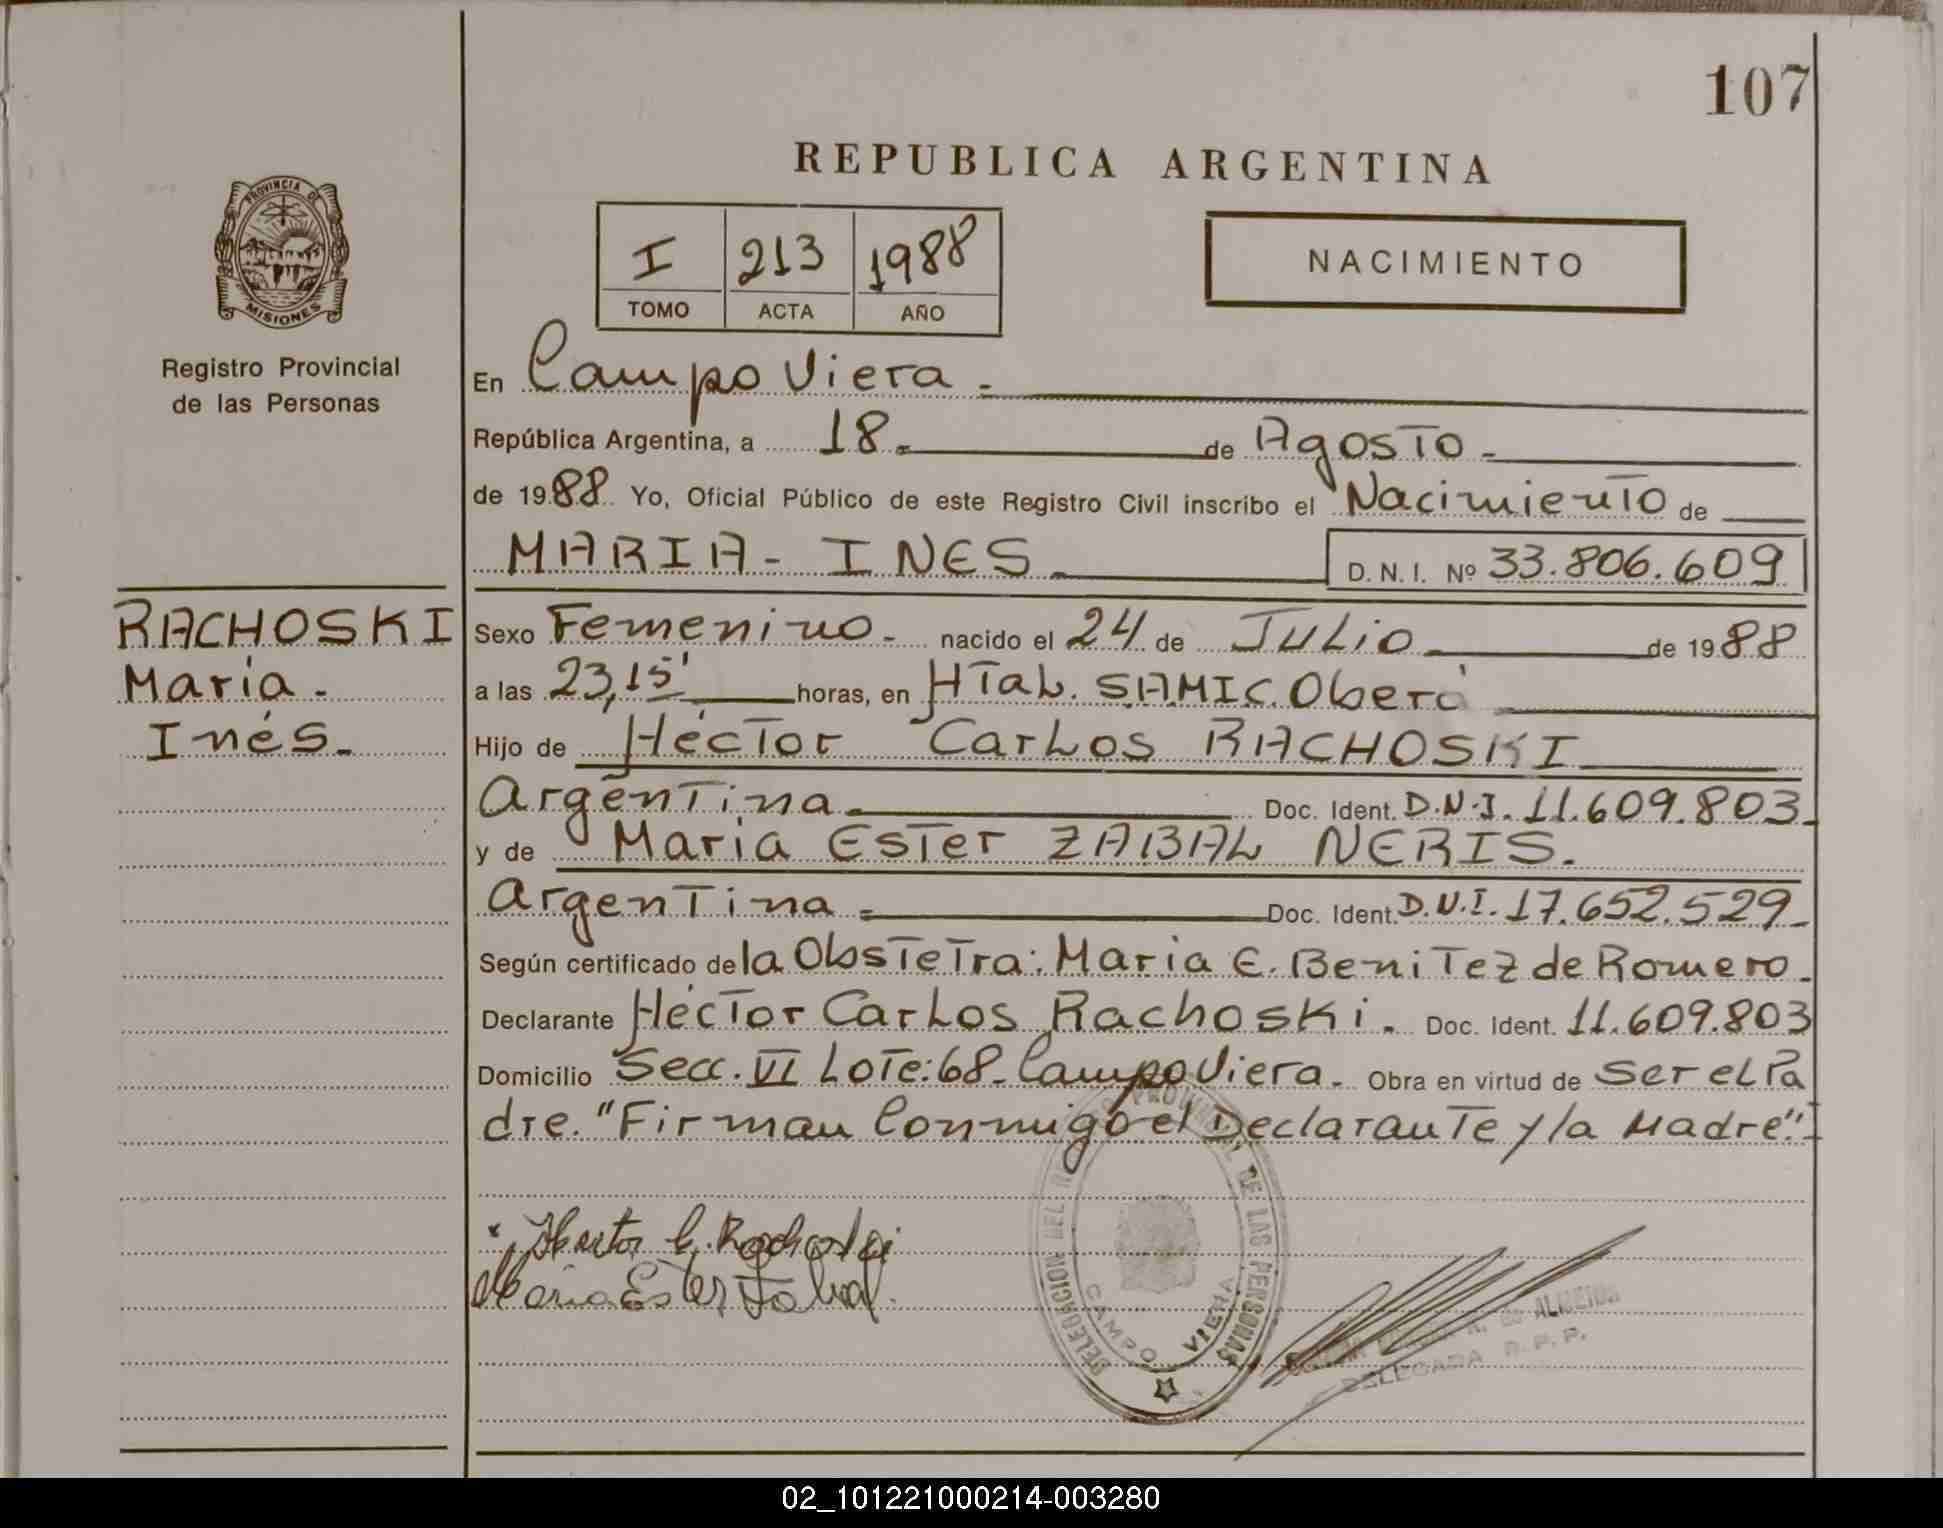 107
REPUBLICA ARGENTINA
PROVINCIA DE
MISIONES
Registro Provincial
de las Personas
I 213 1988
TOMO ACTA AÑO
NACIMIENTO
En Campo Viera.-
República Argentina, a 18.- de Agosto.-
de 1988. Yo, Oficial Público de este Registro Civil inscribo el Nacimiento de
MARIA - INES.- D. N. I. Nº 33.806.609
RACHOSKI
María.
Inés.-
Sexo Femenino.- nacido el 24 de Julio de 1988
a las 23,15' horas, en Htal. SAMIC. Oberá
Hijo de Héctor Carlos RACHOSKI
Argentina.- Doc. Ident. D.N.I. 11.609.803.-
y de Maria Ester ZABAL NERIS.
Argentina.- Doc. Ident. D.N.I. 17.652.529.-
Según certificado de la Obstetra: Maria E. Benitez de Romero.
Declarante Héctor Carlos Rachoski. Doc. Ident. 11.609.803
Domicilio Secc. VI Lote: 68- Campo Viera.- Obra en virtud de Ser el Pa
dre. "Firman Conmigo el Declarante y la Madre".-
Hector C. Rachoski
Maria Ester Zabal.
DELEGACION DEL PROVINCIAL DE LAS PERSONAS
CAMPO VIERA
DE ALMEIDA
DELEGADA R. P. P.
02_101221000214-003280